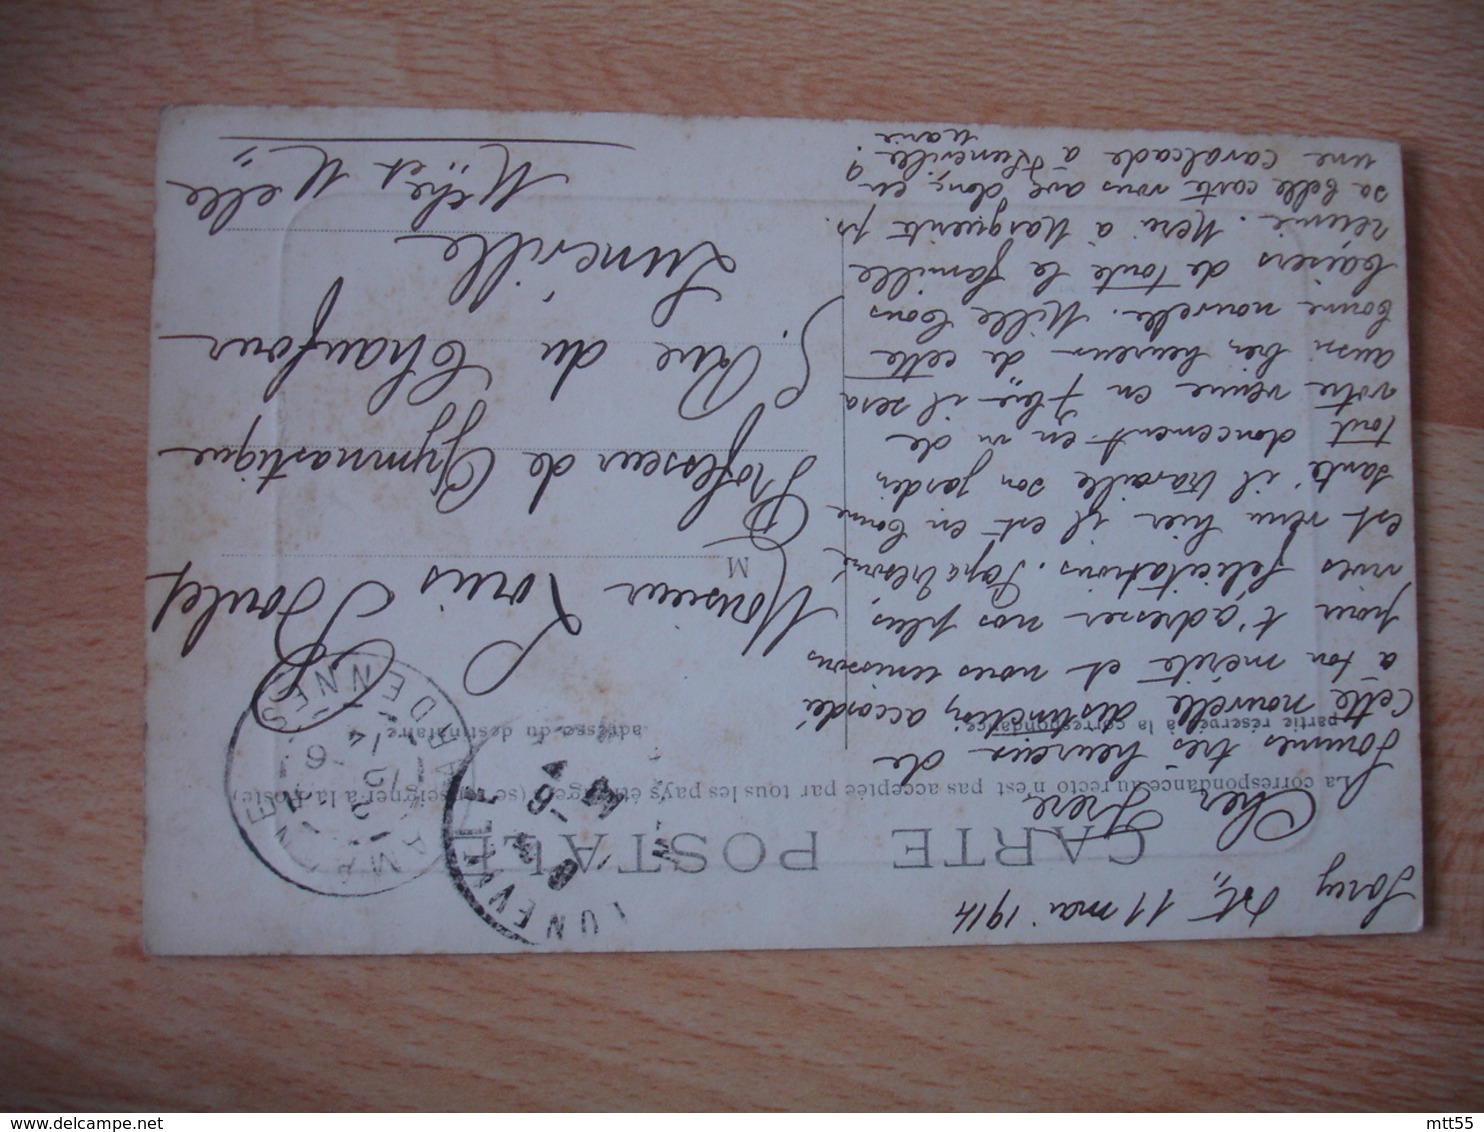 CARTE POSTALE
La correspondance au recto n'est pas acceptée par tous les pays étrangers (se renseigner à la Poste)
partie réservée à la correspondance
adresse du destinataire
11 mai 1914
Cher Frère,
Sommes très heureux de
cette nouvelle distinction accordée
à ton mérite et nous unissons
pour t'adresser nos plus
vives félicitations. Papa
est venu hier il est en bonne
santé il travaille son jardin
tout doucement en vu de
votre venue en 7bre il sera
aussi bien heureux de cette
bonne nouvelle. Mille bons
baisers de toute la famille
réunie. Merci à Marguerite ps.
sa belle carte vous avez donc eu
une cavalcade à Lunéville ?
Marie
M
Monsieur Louis Boulet
Professeur de Gymnastique
5. Rue du Chaufour
Lunéville
Mthe et Melle
MAGNE
ARDENNES
12-5
14
LUNEVILLE